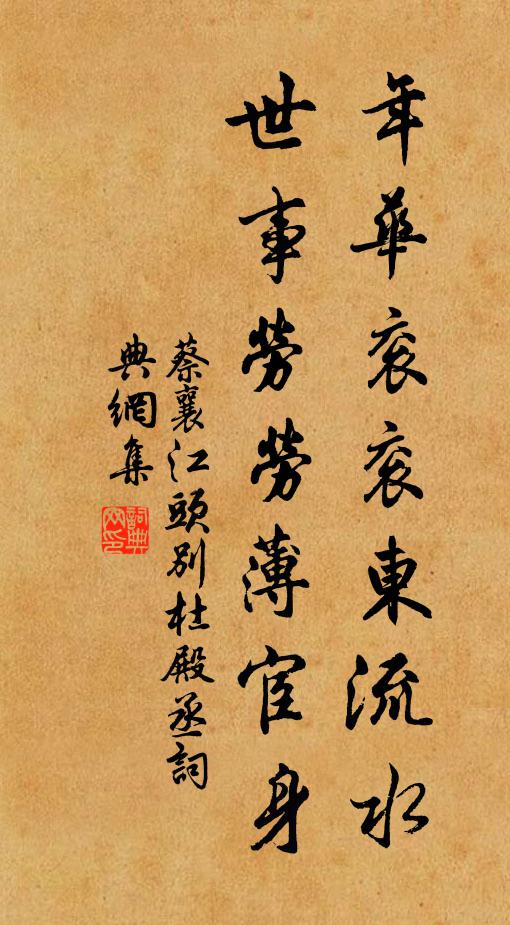 年華衮衮東流水
世事勞勞薄宦身
蔡襄江頭別杜殿丞詞
典網集